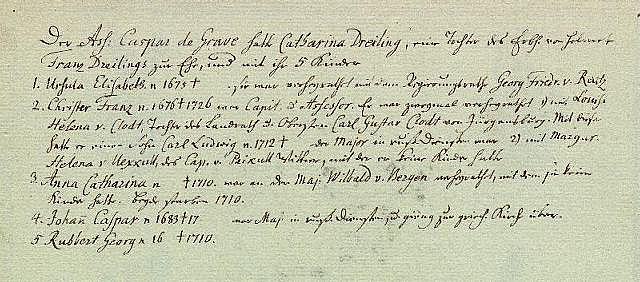 Der Ass: Caspar de Grave hatte Catharina Dreiling, eine Tochter des Erbh. von
Franz Dreilings zur Ehe, und mit ihr 5 Kinder
1. Ursula Elisabeth n 1675 † sie war verheyrathet mit dem Regierungsrath Georg Friedr. v. Reitz
2. Christer Franz n. 1676 † 1726 war Capit. u Assessor. Er war zweymal verheyrathet 1) mit Louisa
Helena v. Clodt, Tochter des Landrath u. Obristen Carl Gustav Clodt von Jürgensburg. Mit dieser
hatte er einen Sohn Carl Ludwig n. 1712 † der Major in russ. Diensten war 2) mit Margar.
Helena v Uexkull, des Cap. v Wittwe, mit der er keine Kinder hatte
3. Anna Catharina n † 1710. war an den Maj: Wilbald v. Bergen verheyrathet, mit dem sie keine
Kinder hatte. Beyde starben 1710.
4. Johan Caspar n 1683 † 17 war Maj in russ. Diensten, u gieng zur griech. Kirch über.
5 Rubbert Georg n 16 † 1710.